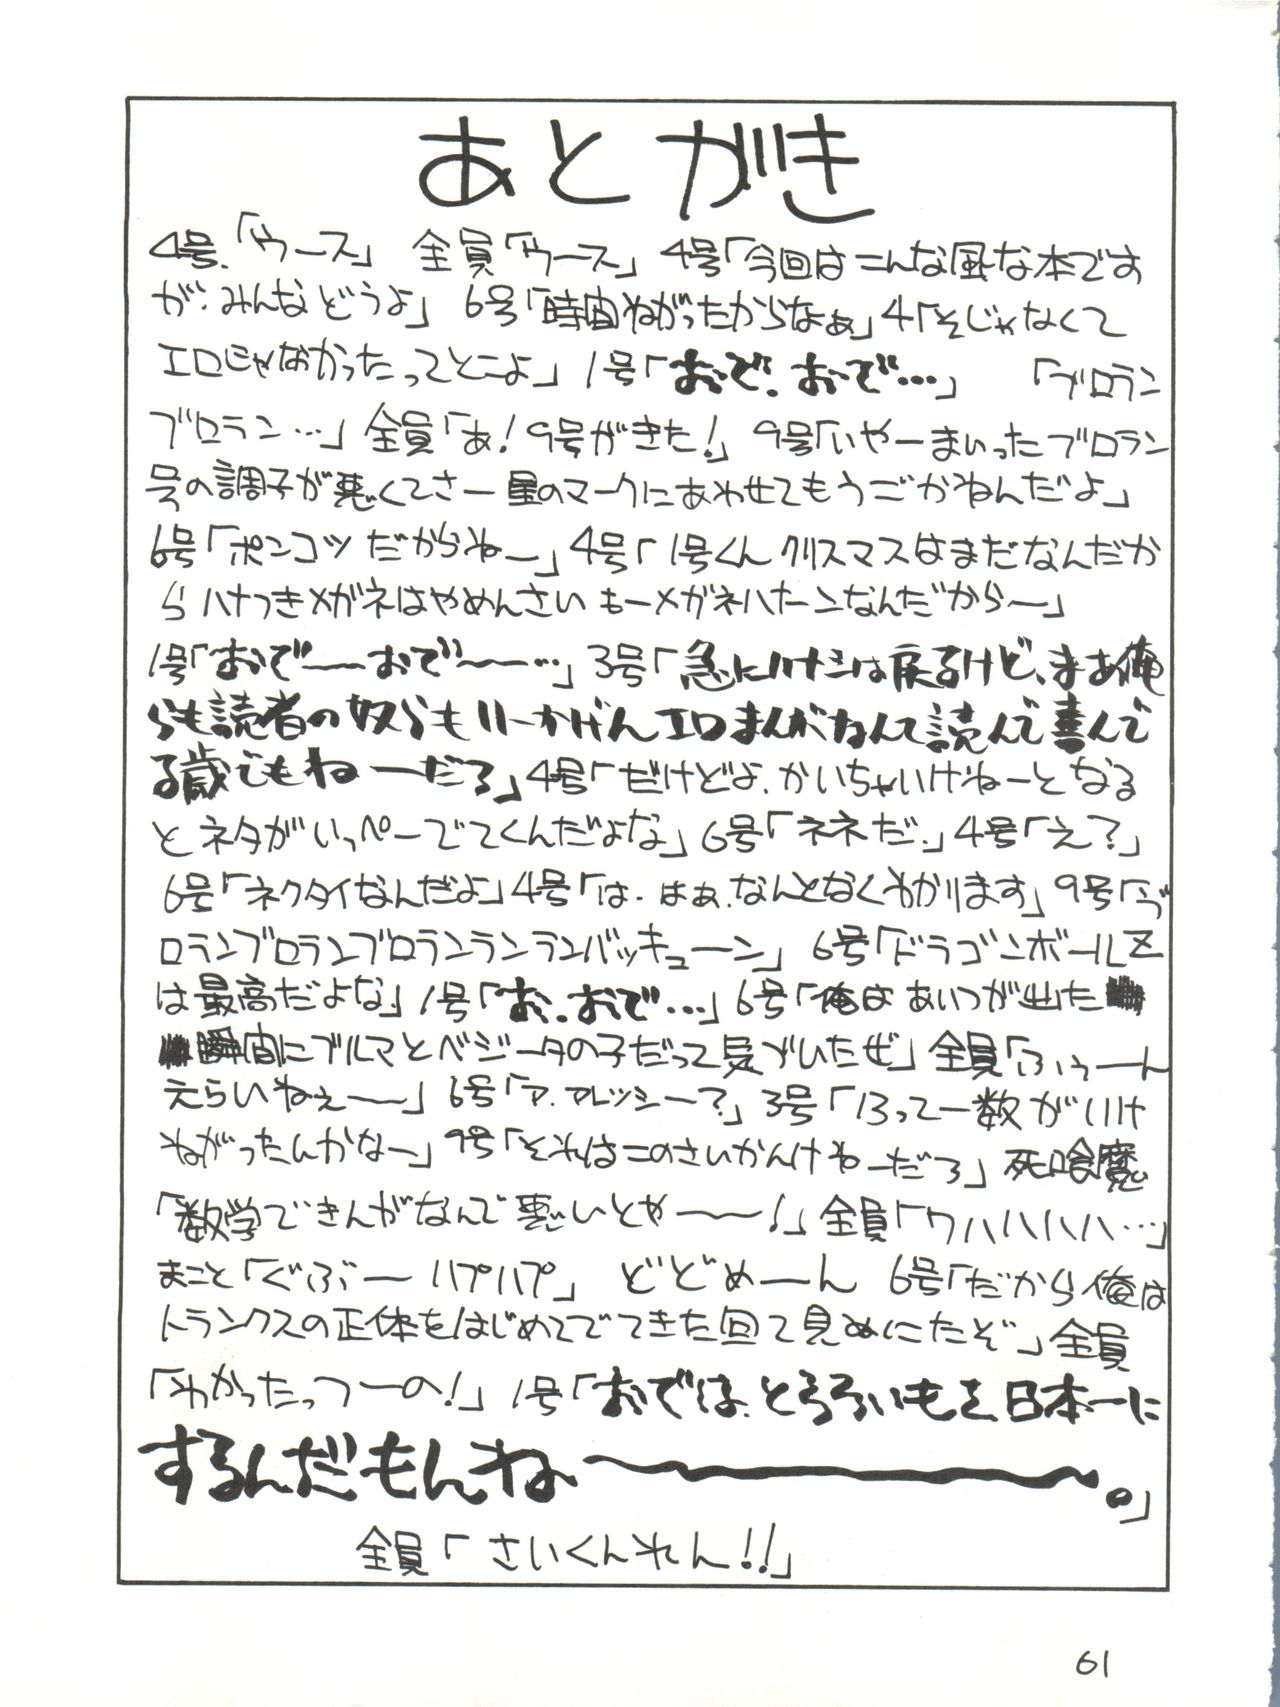 あとがき
4号.「ウース」 全員「ウース」 4号「今回はこんな風な本です
が.みんなどうよ」 6号「時間ねがったからなぁ」4「そじゃなくて
エロじゃなかったってとこよ」 1号「おで.おで…」 「ブロラン
ブロラン…」全員「あ!9号がきた!」 9号「いやーまいったブロラン
号の調子が悪くてさー星のマークにあわせてもうごかねんだよ」
6号「ポンコツだからねー」4号「1号くんクリスマスはまだなんだか
らハナつきメガネはやめんさいもーメガネハナーンなんだから〜」
1号「おで〜〜おで〜〜…」3号「急にハナシは戻るけど、まあ俺
らも読者の奴らもいーかげんエロまんがなんて読んで喜んで
る歳でもねーだろ」4号「だけどよ.かいちゃいけねーとなる
とネタがいっぺーでてくんだよな」6号「ネネだ.」4号「え?」
6号「ネクタイなんだよ」4号「は.はぁ.なんとなくわかります」9号「ブ
ロランブロランブロランランランバッキューン」 6号「ドラゴンボールZ
は最高だよな」1号「お.おで…」6号「俺はあいつが出た
瞬間にブルマとベジータの子だって気づいたぜ」全員「ふぅーん
えらいねぇ〜〜」6号「ア.アレッシー?」3号「13って一数がいけ
ねがったんかなー」9号「それはこのさいかんけねーだろ」死喰魔
「数学できんがなんで悪いとや〜〜!」全員「ワハハハハハ…」
まこと「ぐぶ〜ハプハプ」 どどめーん 6号「だから俺は
トランクスの正体をはじめてでてきた回で見ぬいたぞ」全員
「わかったっつーの!」1号「おでは.とろろいもを.日本一に
するんだもんね〜〜〜。」
全員「さいくんれん!!」
61